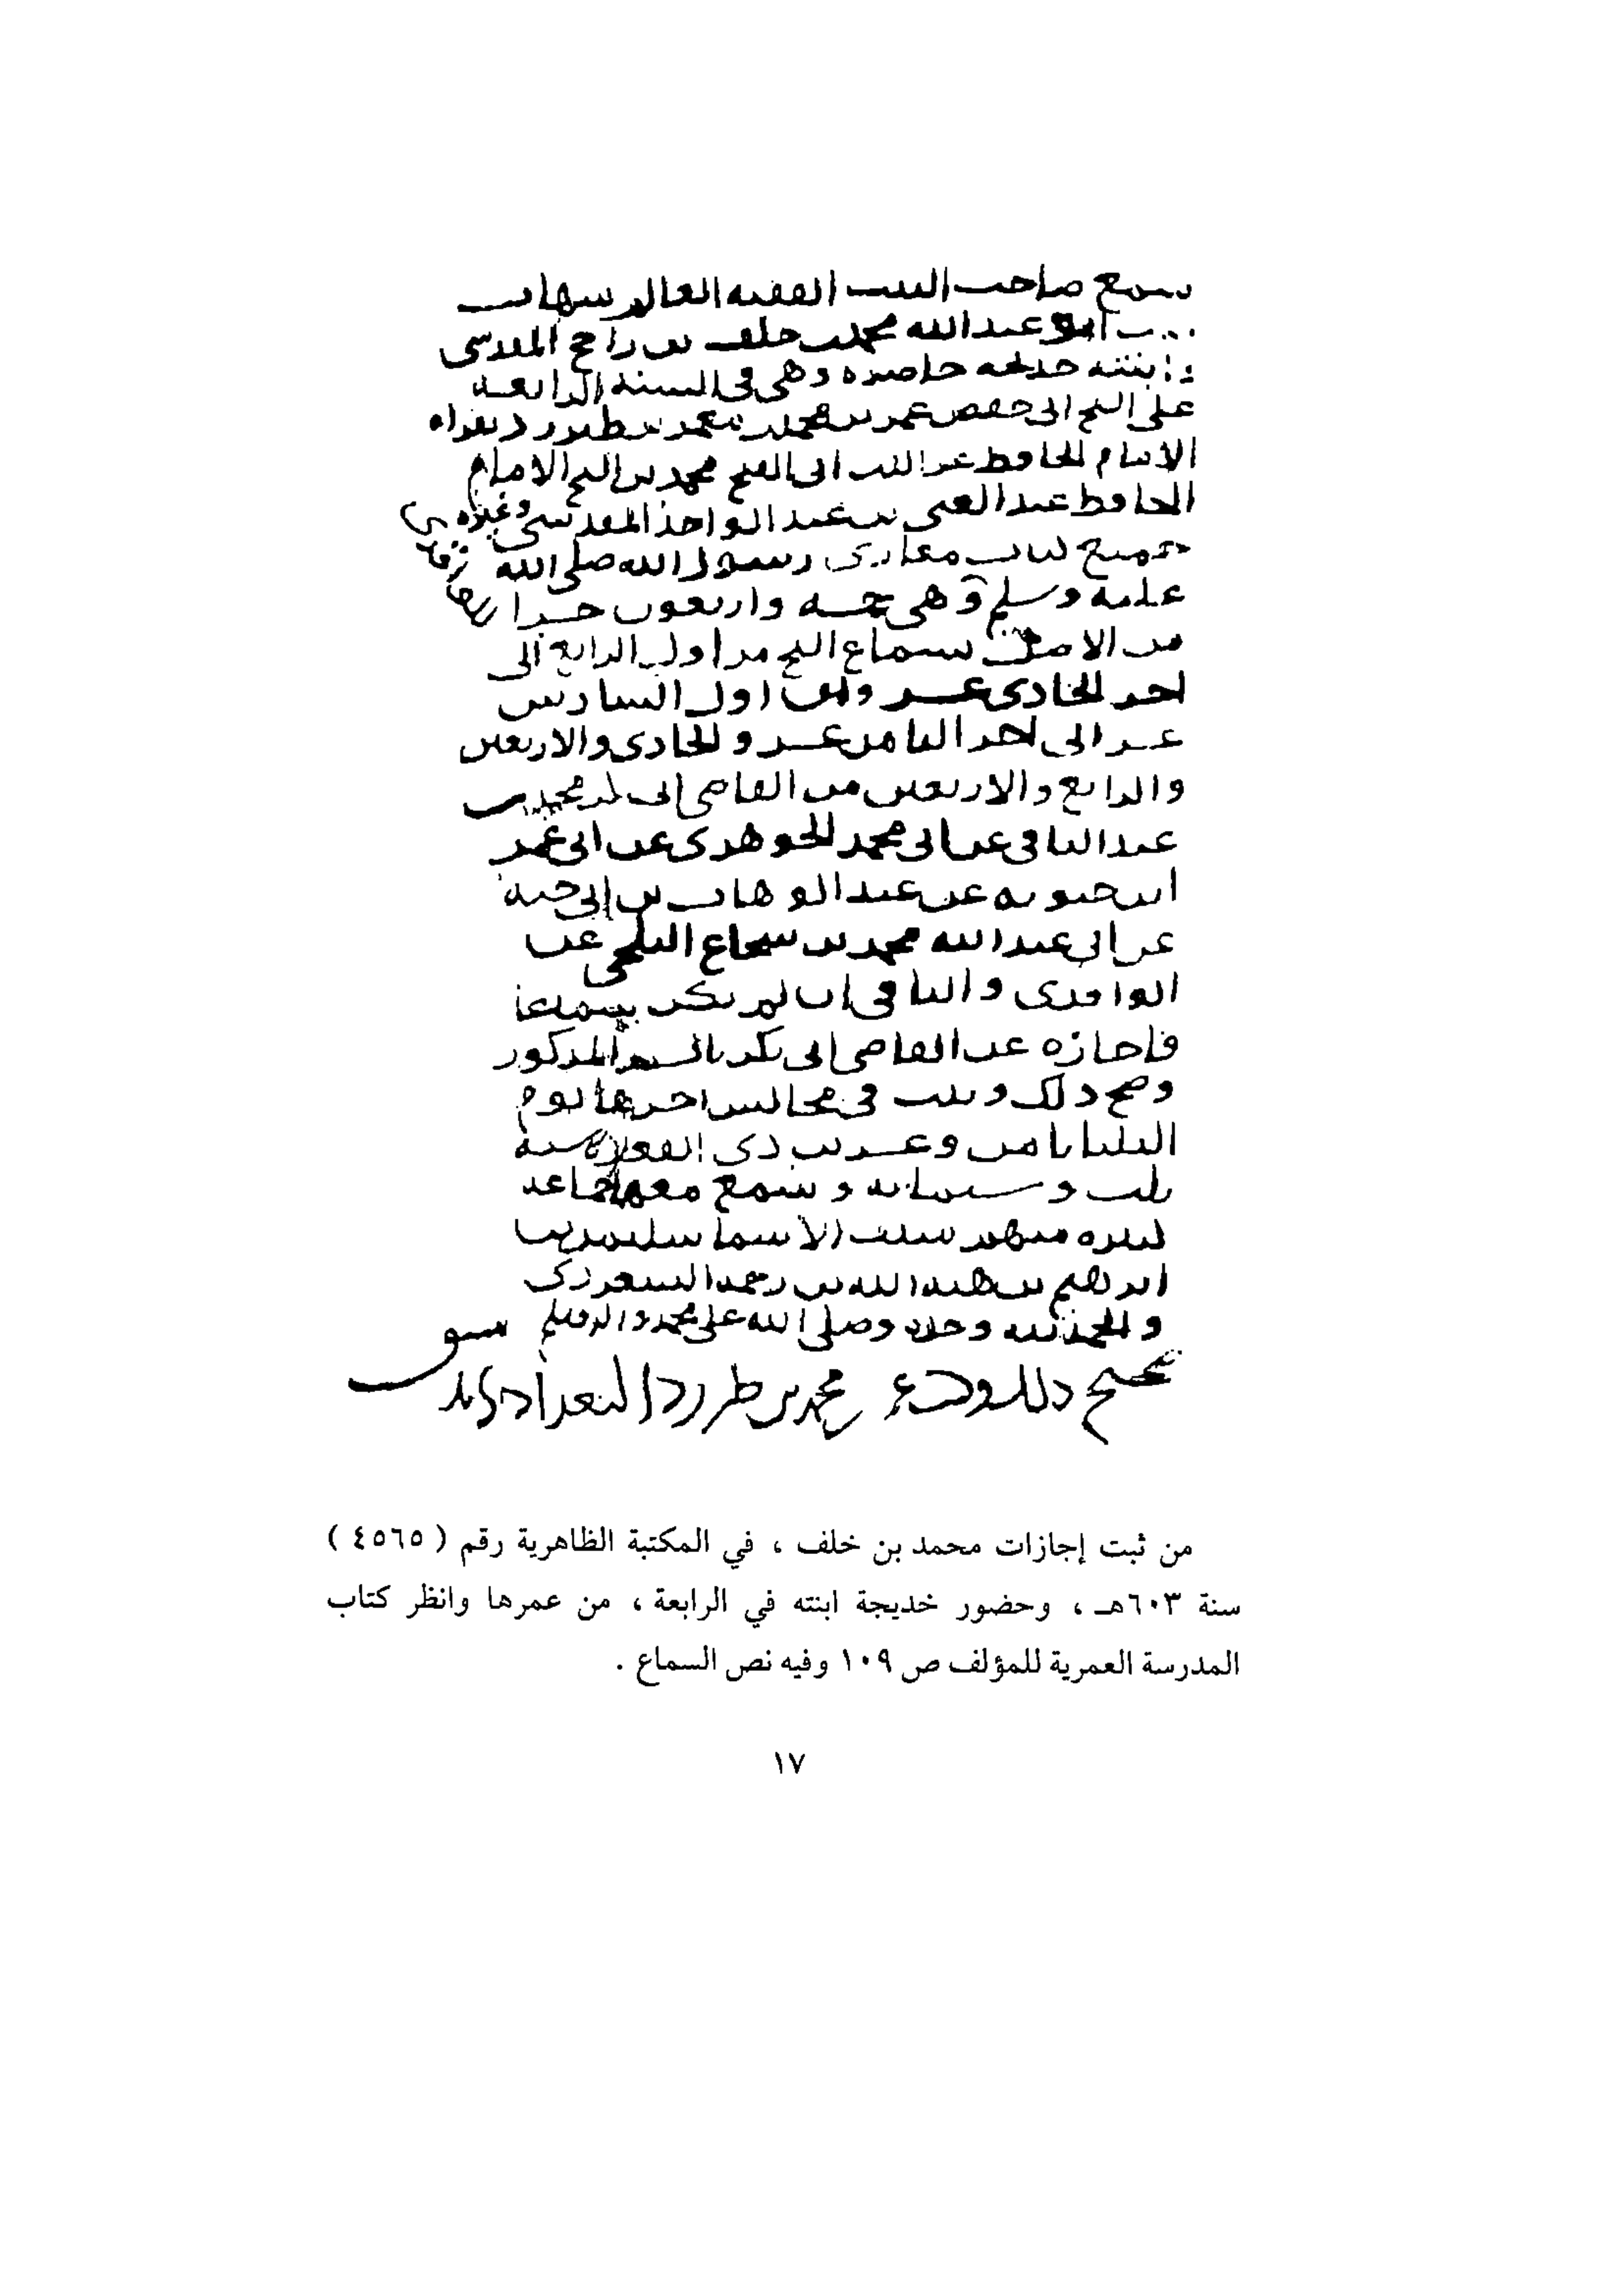 سمع صاحب الثبت الفقيه العالم شهاب
ابو عبد الله محمد بن خلف بن راجح المقدسي
وابنته خديجة حاضره وهي في السنة الرابعة
على الشيخ ابي حفص عمر بن محمد بن معمر بن طبرزد بقراه
الامام الحافظ عز الدين ابي الفتح محمد بن الشيخ الامام
الحافظ عبد الغني بن عبد الواحد المقدسي وغيره
جميع كتاب مغازي رسول الله صلى الله
عليه وسلم وهي خمسة واربعون جزا
من الاصل سماع الشيخ من اول الرابع الى
اخر الحادي عشر ومن اول السادس
عشر الى اخر الثامن عشر والحادي والاربعين
والرابع والاربعين من القاضي ابي بكر محمد بن
عبد الباقي عن ابي محمد الجوهري عن ابي عمر
ابن حيويه عن عبد الوهاب بن ابي حية
عن ابي عبد الله محمد بن شجاع الثلجي عن
الواقدي والباقي ان لم يكن سماعا
فاجازه عن القاضي ابي بكر بالسند المذكور
وصح ذلك وثبت في مجالس اخرها يوم
الثلثا ثامن وعشرين ذي القعدة سنة
ثلث وستمائة وسمع معهما جماعة
كثيره منهم مثبت الاسما سليمن بن
ابرهيم بن هبة الله بن رحمة السعردي
والحمد لله وحده وصلى الله على محمد واله وسلم
صحيح ذلك وكتب عمر بن محمد بن طبرزد البغدادي
من ثبت إجازات محمد بن خلف ، في المكتبة الظاهرية رقم ( ٤٥٦٥ )
سنة ٦٠٣هـ ، وحضور خديجة ابنته في الرابعة ، من عمرها وانظر كتاب
المدرسة العمرية للمؤلف ص ١٠٩ وفيه نص السماع .
١٧